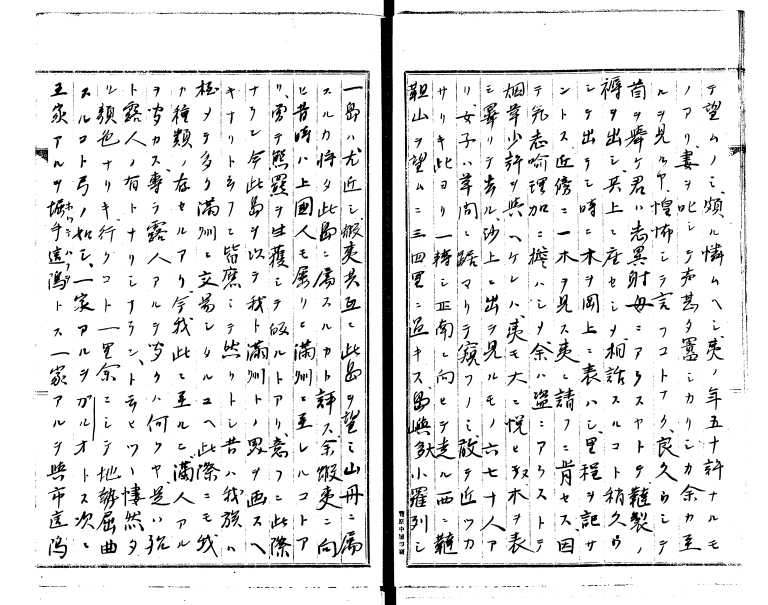 テ望ムノミ頗ル憐ムヘシ夷ノ年五十許ナルモ
ノアリ妻ヲ叱シテ声甚タ罵シカリシカ余カ至
ルヲ見ルヤ惶怖シテ言フコトナク良久ウシテ
首ヲ挙ケ君ハ志異射母ニアラスヤトテ韃製ノ
褥ヲ出シ其上ニ座セシメ相話スルコト稍久ウ
シテ出テシ時ニ木ヲ岡上ニ表ハシ里程ヲ記サ
ントス近傍ニ一木ヲ見ス夷ニ請フニ肯セス因
テ乳志喩理加ニ擔ハシメ余ハ盗ニアラストテ
烟草少許ヲ與ヘケレハ夷モ大ニ悦ヒ取木ヲ表
シ畢リテ去ル沙上ニ出テ見ルモノ六七十人ア
リ女子ハ草間ニ踞マリテ窺フノミ敢テ近ツカ
サリキ此ヨリ一轉シ正南ニ向ヒテ走ル西ニ韃
靼山ヲ望ムニ三四里ニ過キス島嶼多小羅列シ
一島ハ尤近シ蝦夷共亙ニ此島ヲ望ミ山丹ニ属
スルカ将タ此島ニ属スルカト評ス余蝦夷ニ向
ヒ昔時ハ上國人モ属リニ満州ニ至レルコトア
リ雪テ熊羆ヲ生獲シテ皈ルトアリ意フニ此際
ナラン今此島ヲ以テ我ト満州トノ界ヲ画スヘ
キナリト云フニ皆應シテ然リトシ昔ハ我族ハ
極メテ多ク満州ニ交易シタルユヘ此際ニモ我
カ種類ノ存セルアリ今我此ニ至ルニ満人アル
ヲ以カス專ラ露人アルヲ以クハ何クヤ是ハ殆
ト露人ノ有トナリシナラント云ヒツヽ悽然タ
ル顔色ナリキ行クコト一里余ニシテ地勢屈曲
スルコト弓ノ如シ一家アルヲガルオトス次ニ
五家アルヲ堀手遠潟トス一家アルヲ與布遠潟